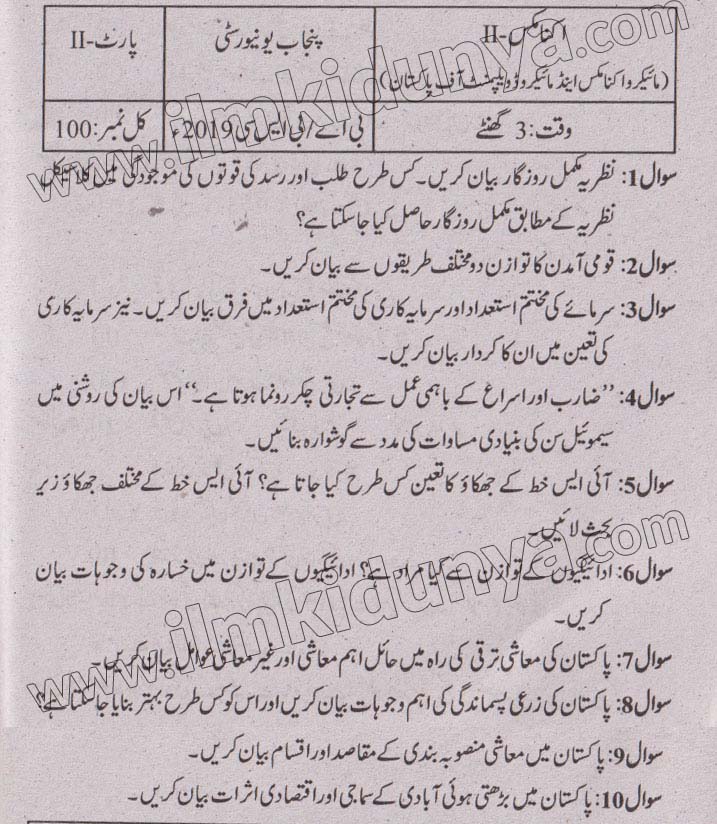 اکنامکس-II
پنجاب یونیورسٹی
پارٹ-II
(مائیکرو اکنامکس اینڈ مائیکرو ڈویلپمنٹ آف پاکستان)
وقت: 3 گھنٹے
بی اے/بی ایس سی 2019ء
کل نمبر: 100
سوال 1: نظریہ مکمل روزگار بیان کریں۔ کس طرح طلب اور رسد کی قوتوں کی موجودگی میں کلاسیکل
نظریہ کے مطابق مکمل روزگار حاصل کیا جا سکتا ہے؟
سوال 2: قومی آمدن کا توازن دو مختلف طریقوں سے بیان کریں۔
سوال 3: سرمائے کی مختتم استعداد اور سرمایہ کاری کی مختتم استعداد میں فرق بیان کریں۔ نیز سرمایہ کاری
کی تعین میں ان کا کردار بیان کریں۔
سوال 4: ’’ضارب اور اسراع کے باہمی عمل سے تجارتی چکر رونما ہوتا ہے۔‘‘ اس بیان کی روشنی میں
سیموئیل سن کی بنیادی مساوات کی مدد سے گوشوارہ بنائیں۔
سوال 5: آئی ایس خط کے جھکاؤ کا تعین کس طرح کیا جاتا ہے؟ آئی ایس خط کے مختلف جھکاؤ زیر
بحث لائیں۔
سوال 6: ادائیگیوں کے توازن سے کیا مراد ہے؟ ادائیگیوں کے توازن میں خسارہ کی وجوہات بیان
کریں۔
سوال 7: پاکستان کی معاشی ترقی کی راہ میں حائل اہم معاشی اور غیر معاشی عوامل بیان کریں۔
سوال 8: پاکستان کی زرعی پسماندگی کی اہم وجوہات بیان کریں اور اس کو کس طرح بہتر بنایا جا سکتا ہے؟
سوال 9: پاکستان میں معاشی منصوبہ بندی کے مقاصد اور اقسام بیان کریں۔
سوال 10: پاکستان میں بڑھتی ہوئی آبادی کے سماجی اور اقتصادی اثرات بیان کریں۔
www.ilmkidunya.com
www.ilmkidunya.com